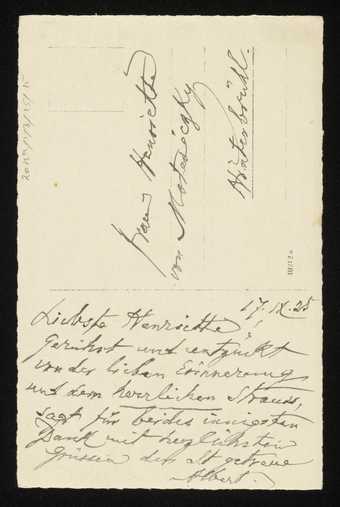 Frau Henriette
von Motesiczky
Hinterbrühl.
17.IX.25
Liebste Henriette!
Gerührt und entzückt
von der lieben Erinnerung
und dem herrlichen Strauss,
sagt für beides innigsten
Dank mit herzlichsten
Grüssen der alt getreue
Albert.